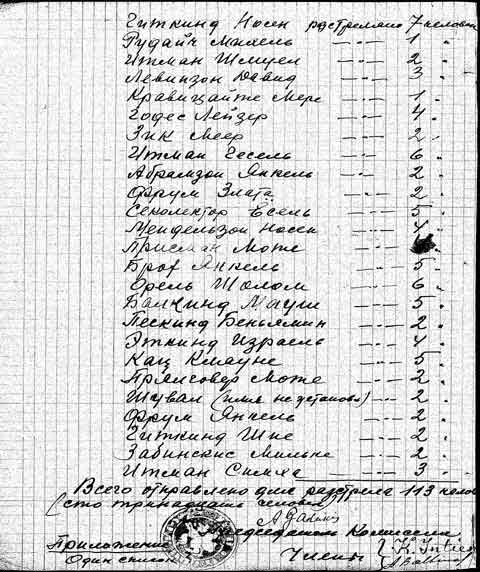 Гиткинд Носен расстреляно 7 человек
Рудайч Михель —"— 1 "
Итман Шмуел —"— 2 "
Левинзон Давид —"— 3 "
Кравицайте Мере —"— 1 "
Годес Лейзер —"— 4 "
Зик Меер —"— 2 "
Итман Гесель —"— 6 "
Абрамзон Янкель —"— 2 "
Фрум Злата —"— 2 "
Секолектор Есель —"— 5 "
Мендельзон Носен —"— 4 "
Присман Може —"—
Брод Янкель —"— 5 "
Орель Шолом —"— 6 "
Балкинд Мауш —"— 5 "
Пескинд Беньямин —"— 2 "
Эткинд Израель —"— 4 "
Кац Клауне —"— 5 "
Прянсовер Може —"— 2 "
Шувал (имь не установл) —"— 2 "
Фрум Янкель —"— 2 "
Гиткинд Шне —"— 2 "
Забинскис Мильке —"— 2 "
Итман Симха — 3 "
Всего отправлено для расстрела 113 челов
(сто тринадцать человек)
Председатель Комиссии
Приложение
Один список
Члены {